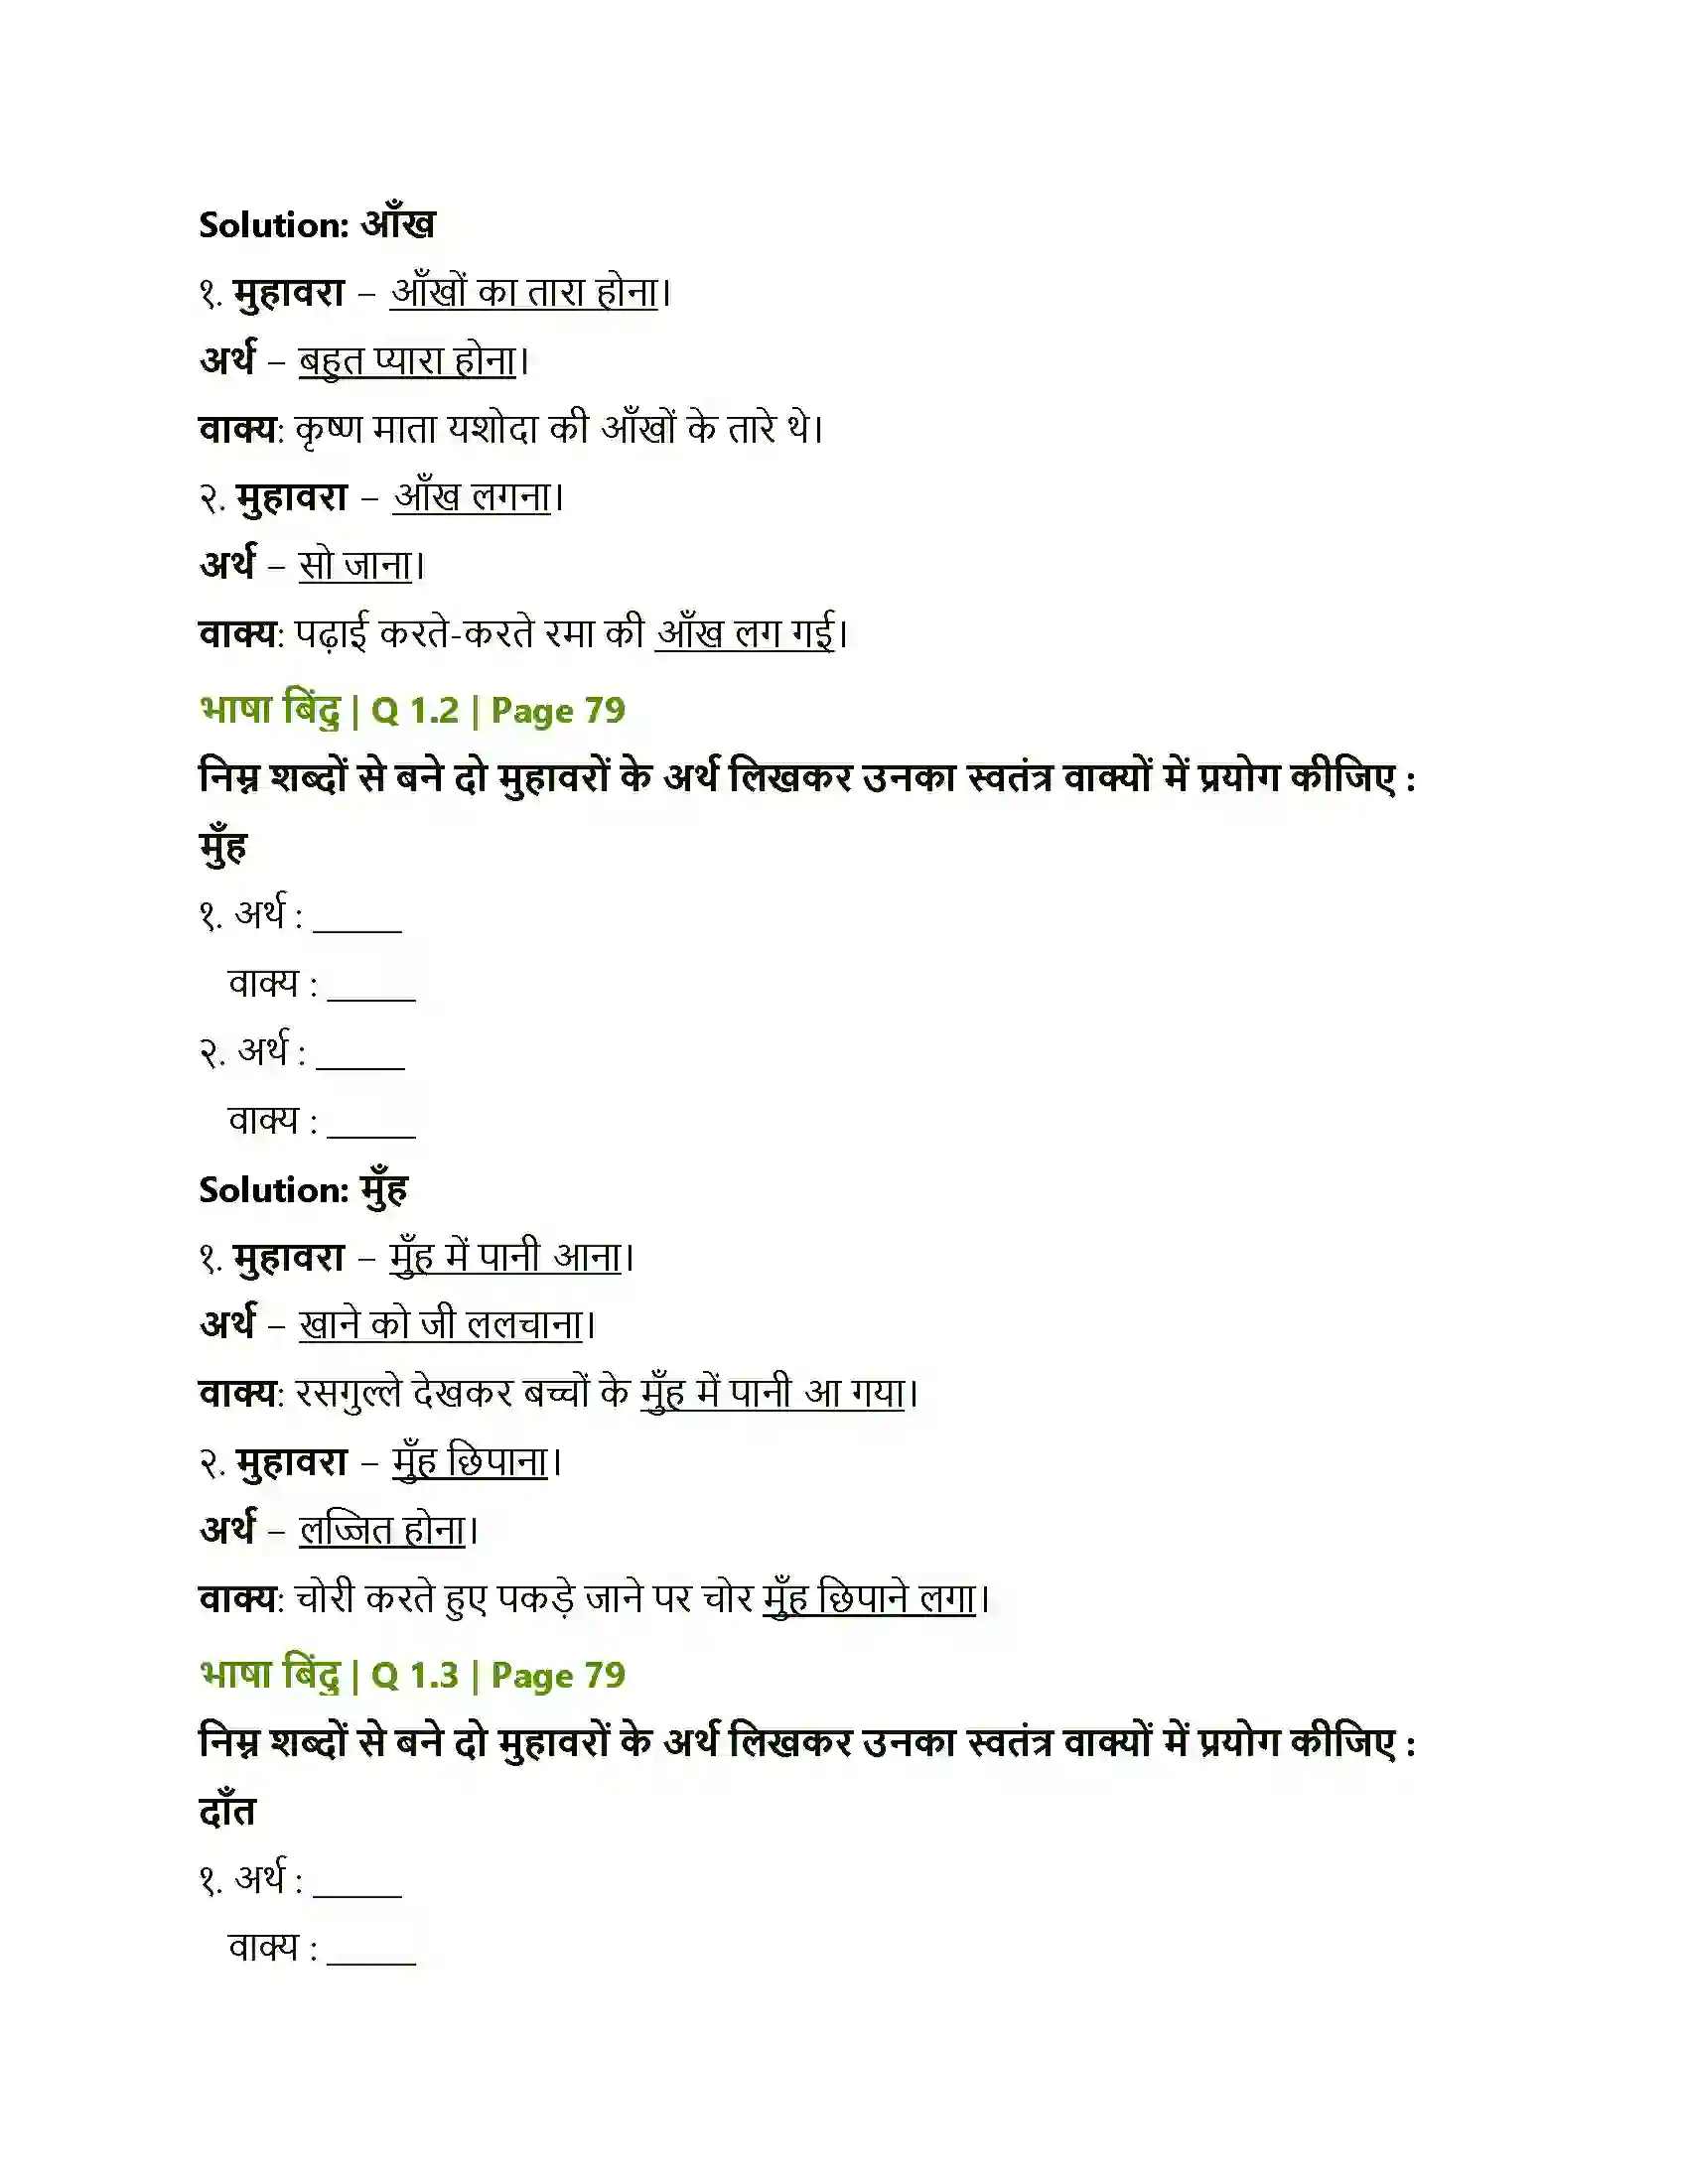 Solution: आँख
१. मुहावरा – आँखों का तारा होना।
अर्थ – बहुत प्यारा होना।
वाक्य: कृष्ण माता यशोदा की आँखों के तारे थे।
२. मुहावरा – आँख लगना।
अर्थ – सो जाना।
वाक्य: पढ़ाई करते-करते रमा की आँख लग गई।
भाषा बिंदु | Q 1.2 | Page 79
निम्न शब्दों से बने दो मुहावरों के अर्थ लिखकर उनका स्वतंत्र वाक्यों में प्रयोग कीजिए :
मुँह
१. अर्थ : _____
वाक्य : _____
२. अर्थ : _____
वाक्य : _____
Solution: मुँह
१. मुहावरा – मुँह में पानी आना।
अर्थ – खाने को जी ललचाना।
वाक्य: रसगुल्ले देखकर बच्चों के मुँह में पानी आ गया।
२. मुहावरा – मुँह छिपाना।
अर्थ – लज्जित होना।
वाक्य: चोरी करते हुए पकड़े जाने पर चोर मुँह छिपाने लगा।
भाषा बिंदु | Q 1.3 | Page 79
निम्न शब्दों से बने दो मुहावरों के अर्थ लिखकर उनका स्वतंत्र वाक्यों में प्रयोग कीजिए :
दाँत
१. अर्थ : _____
वाक्य : _____